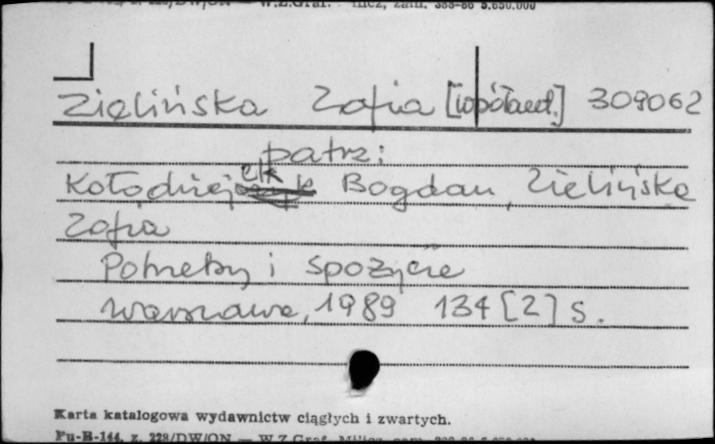 Zielińska Zofia [współaut.] 309062
patrz:
Kołodziejczyk Bogdan, Zielińska
Zofia
Potrzeby i spożycie
Warszawa, 1989 134 [2] s.
Karta katalogowa wydawnictw ciągłych i zwartych.
Pu-B-144, z. 228/DW/ON — W.Z.Graf.